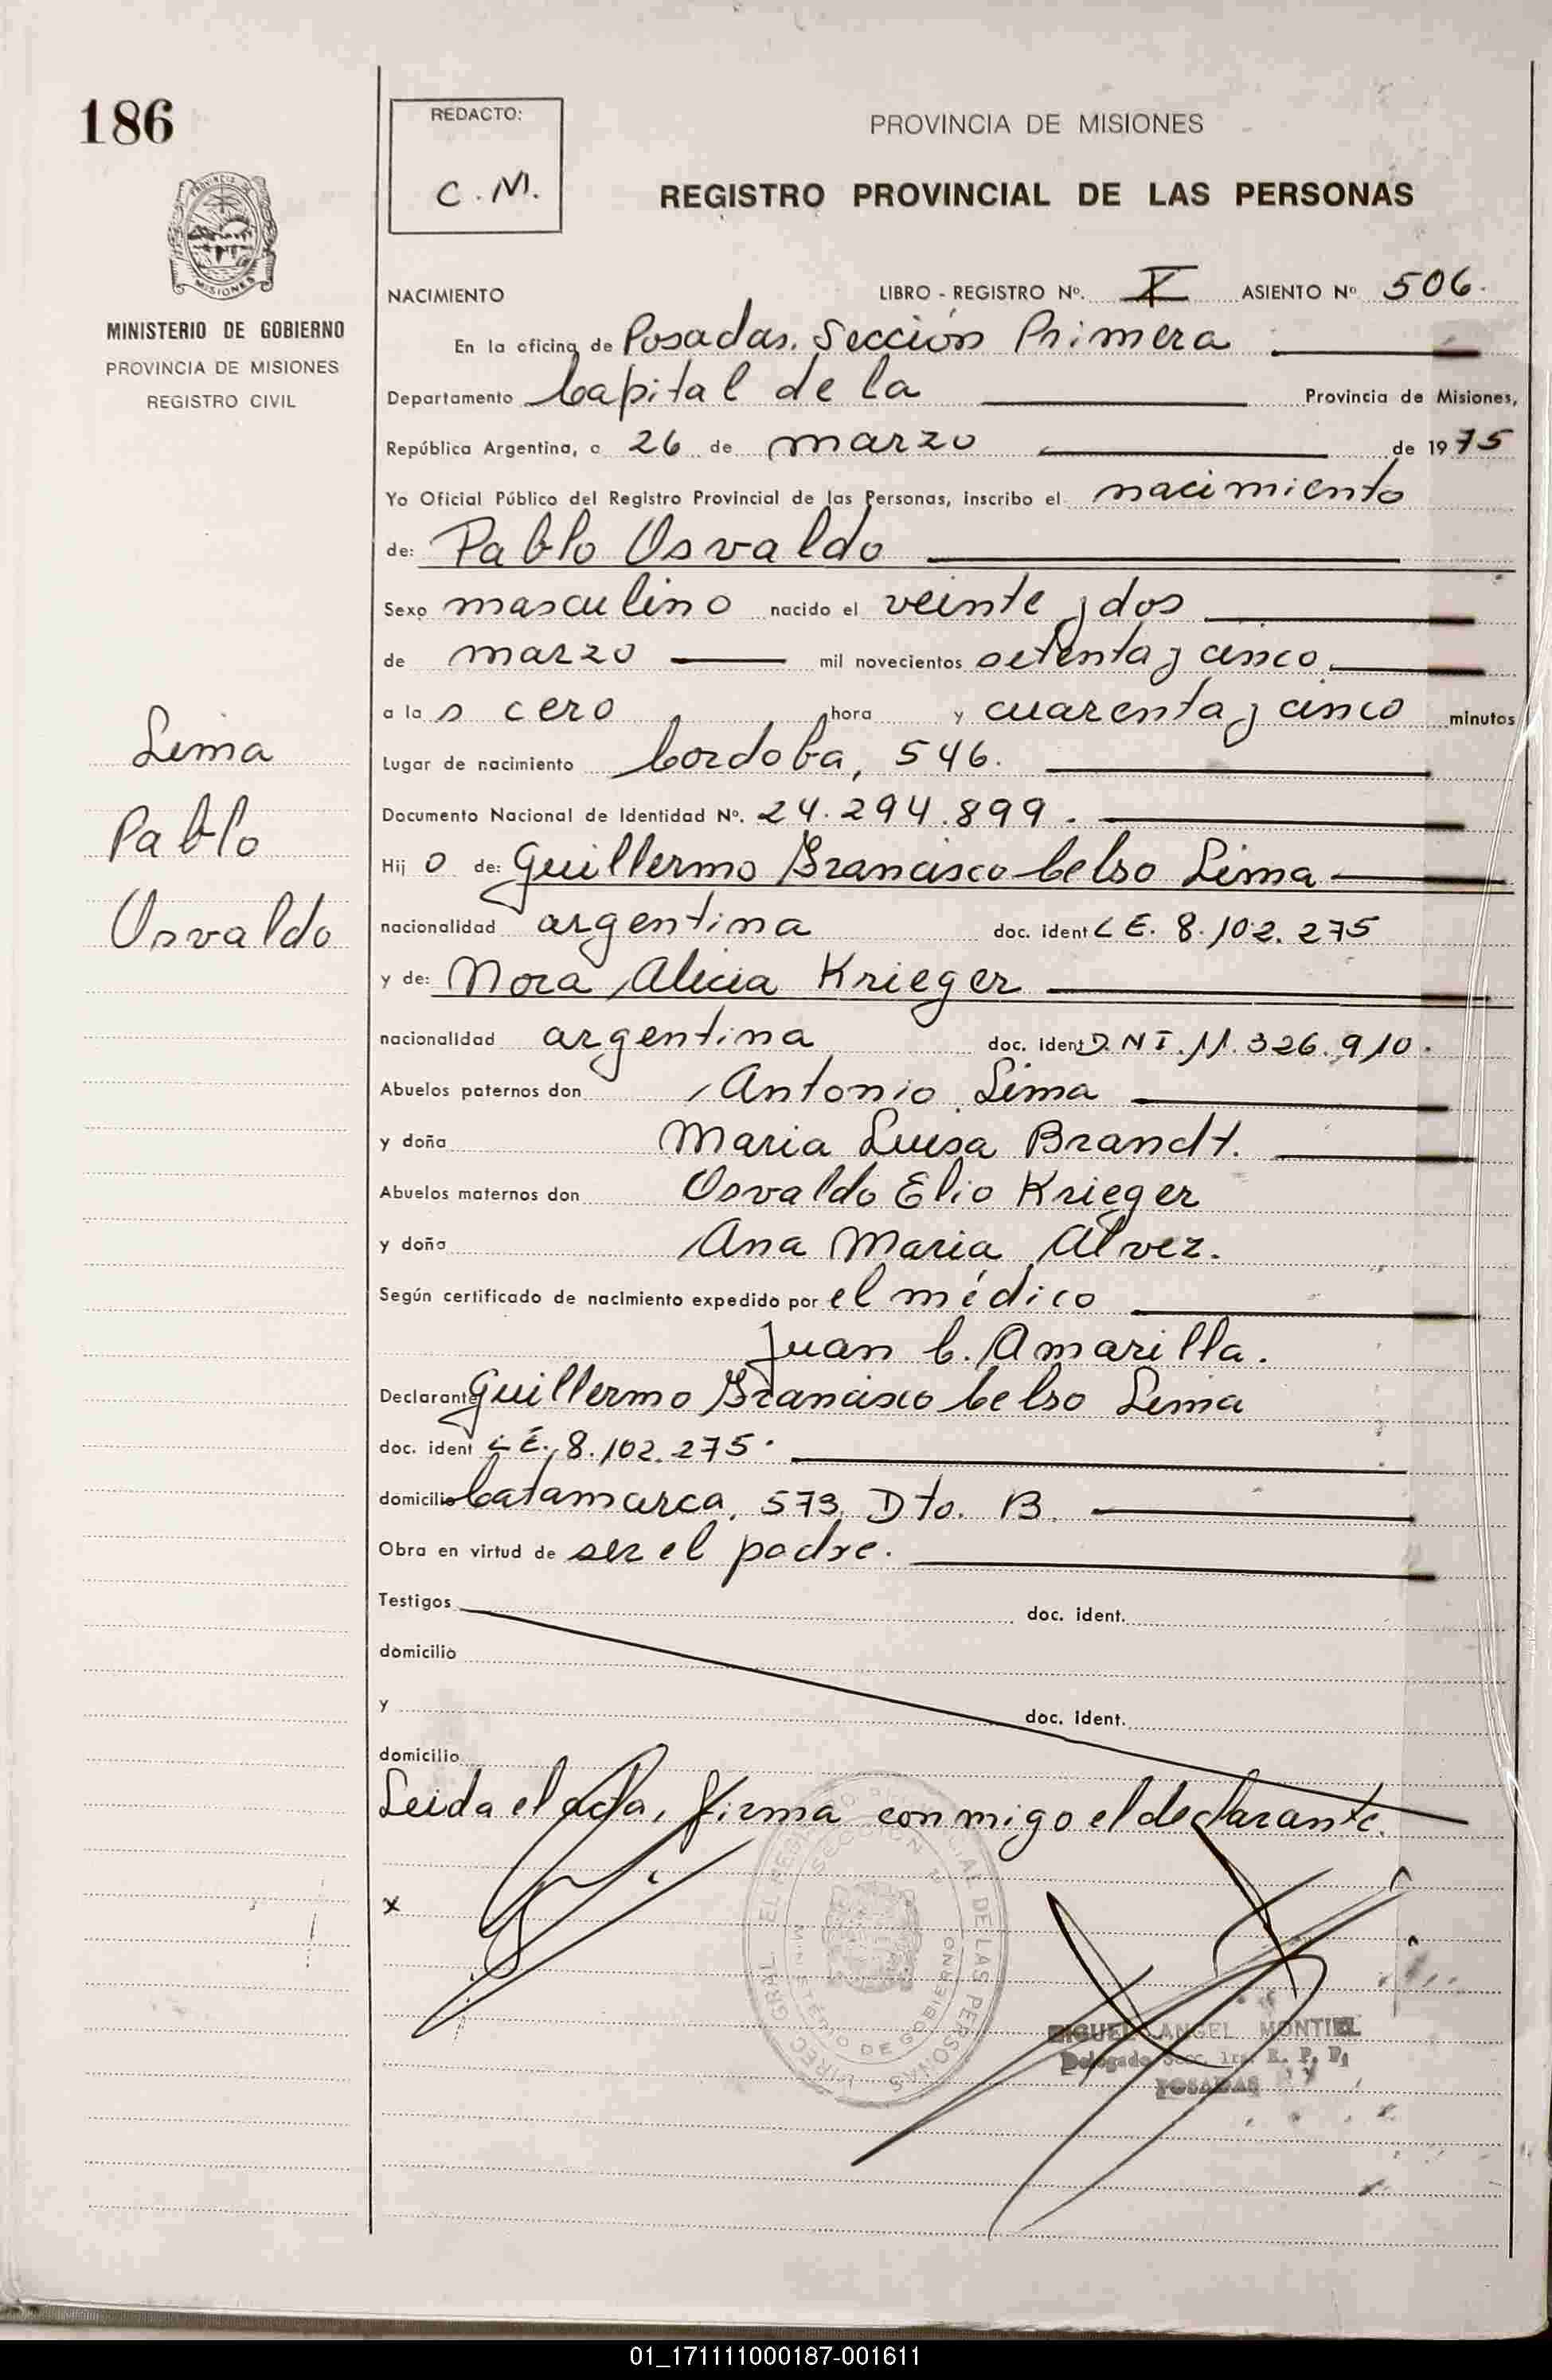 186
REDACTO:
C. M.
PROVINCIA DE MISIONES
REGISTRO PROVINCIAL DE LAS PERSONAS
MISIONES
MINISTERIO DE GOBIERNO
PROVINCIA DE MISIONES
REGISTRO CIVIL
NACIMIENTO LIBRO - REGISTRO Nº. ASIENTO Nº 506.
En la oficina de Posadas, Sección Primera
Departamento Capital de la Provincia de Misiones,
República Argentina, a 26 de marzo de 1975
Yo Oficial Público del Registro Provincial de las Personas, inscribo el nacimiento
de: Pablo Osvaldo
Sexo masculino nacido el veinte y dos
de marzo mil novecientos setenta y cinco
a las cero hora y cuarenta y cinco minutos
Lima
Pablo
Osvaldo
Lugar de nacimiento Cordoba, 546.
Documento Nacional de Identidad Nº. 24.294.899.
Hijo de: Guillermo Francisco Celso Lima
nacionalidad argentina doc. ident L E. 8.102.275
y de: Nora Alicia Krieger
nacionalidad argentina doc. ident D.N I. 11.326.910.
Abuelos paternos don Antonio Lima
y doña Maria Luisa Brandt.
Abuelos maternos don Osvaldo Elio Krieger
y doña Ana Maria Alvez.
Según certificado de nacimiento expedido por el médico
Juan C. Amarilla.
Declarante Guillermo Francisco Celso Lima
doc. ident L E. 8.102.275.
domicilio Catamarca, 573, Dto. B.
Obra en virtud de ser el padre.
Testigos doc. ident.
domicilio
y doc. ident.
domicilio
Leida el acta, firma conmigo el declarante.
x
DIREC. GRAL. DEL REGISTRO PROVINCIAL DE LAS PERSONAS
SECCION 1a
MINISTERIO DE GOBIERNO
MIGUEL ANGEL MONTIEL
Delegado Secc. 1ra. R. P. P.
POSADAS
01_171111000187-001611